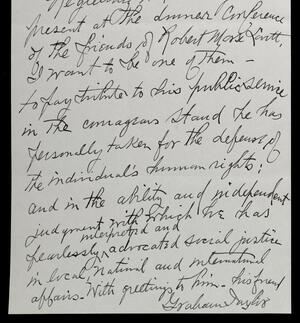 present at the dinner Conference
of the friends of Robert Morss Lovett,
I want to be one of them –
to pay tribute to his public service
in the courageous stand he has
personally taken for the defense of
the individual's human rights;
and in the ability and independent
judgment with which he has
fearlessly interpreted and advocated social justice
in local, national and international
affairs. With greetings to him – his friend
Graham Taylor